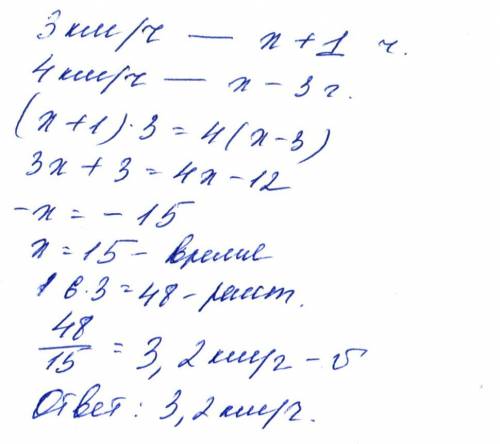 3 км/ч — x + 1 ч.
4 км/ч — x - 3 ч.
(x+1)·3 = 4(x-3)
3x + 3 = 4x - 12
-x = -15
x = 15 - время
16·3 = 48 - расст.
48/15 = 3,2 км/ч - v
Ответ: 3,2 км/ч.